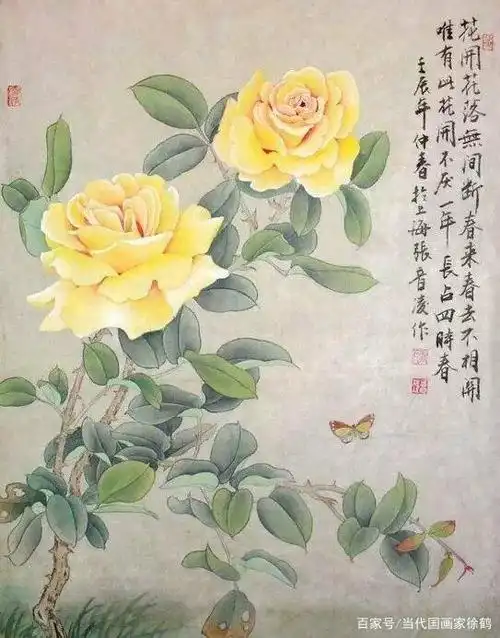 花開花落無间斷春来春去不相関
唯有此花開不厌一年長占四時春
壬辰年仲春於上海張音凌作
百家号/当代国画家徐鹤